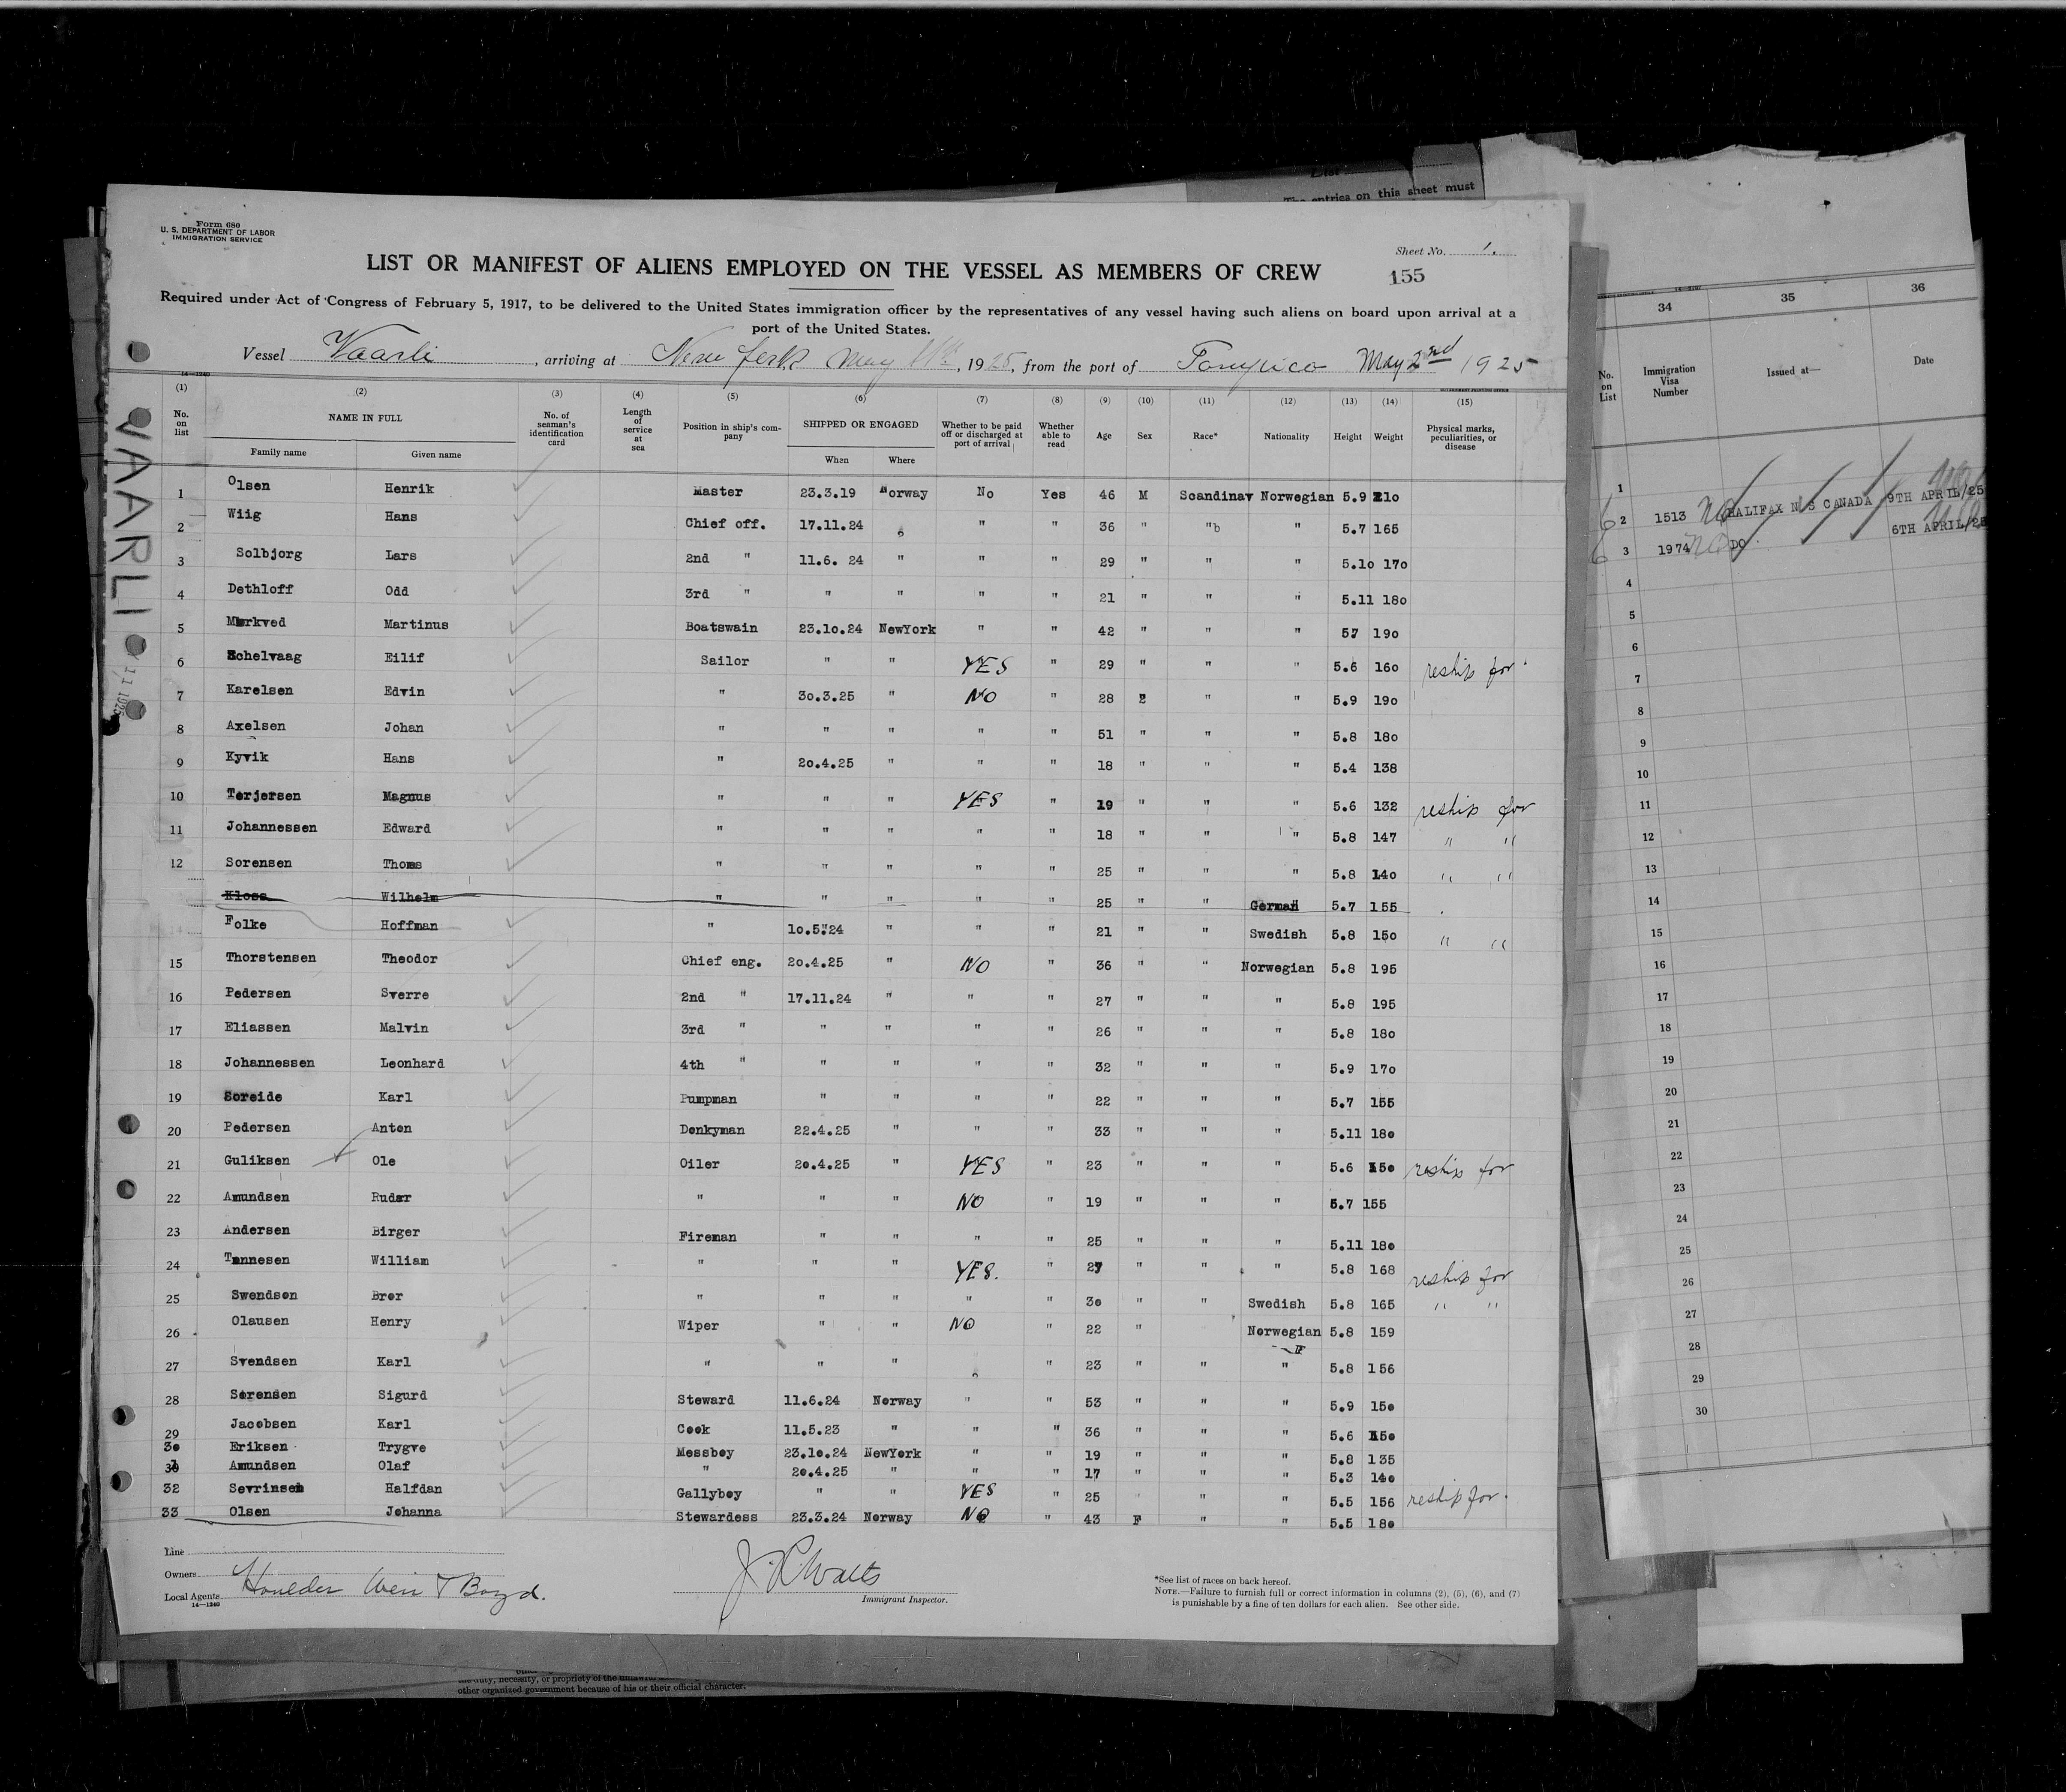 List
The entries on this sheet must
Form 680
U. S. DEPARTMENT OF LABOR
IMMIGRATION SERVICE
Sheet No. 1.
LIST OR MANIFEST OF ALIENS EMPLOYED ON THE VESSEL AS MEMBERS OF CREW
155
Required under Act of Congress of February 5, 1917, to be delivered to the United States immigration officer by the representatives of any vessel having such aliens on board upon arrival at a
port of the United States.
Vessel Vaarli, arriving at New York May 11th, 1925, from the port of Tampico May 2nd 1925
14—1240 GOVERNMENT PRINTING OFFICE
(1) (2) (3) (4) (5) (6) (7) (8) (9) (10) (11) (12) (13) (14) (15)
No. on list NAME IN FULL No. of seaman's identification card Length of service at sea Position in ship's company SHIPPED OR ENGAGED Whether to be paid off or discharged at port of arrival Whether able to read Age Sex Race* Nationality Height Weight Physical marks, peculiarities, or disease
Family name Given name When Where
1 Olsen Henrik Master 23.3.19 Norway No Yes 46 M Scandinav Norwegian 5.9 210
2 Wiig Hans Chief off. 17.11.24 " " 36 " "b " 5.7 165
3 Solbjorg Lars 2nd " 11.6. 24 " " " 29 " " " 5.10 170
4 Dethloff Odd 3rd " " " " " 21 " " " 5.11 180
5 Markved Martinus Boatswain 23.10.24 NewYork " " 42 " " " 57 190
6 Schelvaag Eilif Sailor " " YES " 29 " " " 5.6 160 reship for
7 Karelsen Edvin " 30.3.25 " NO " 28 " " " 5.9 190
8 Axelsen Johan " " " " " 51 " " " 5.8 180
9 Kyvik Hans " 20.4.25 " " " 18 " " " 5.4 138
10 Terjersen Magnus " " " YES " 19 " " " 5.6 132 reship for
11 Johannessen Edward " " " " " 18 " " " 5.8 147 " "
12 Sorensen Thoms " " " " " 25 " " " 5.8 140 " "
Kloss Wilhelm " " " " " 25 " " German 5.7 155
Folke Hoffman " 10.5"24 " " " 21 " " Swedish 5.8 150 " "
15 Thorstensen Theodor Chief eng. 20.4.25 " NO " 36 " " Norwegian 5.8 195
16 Pedersen Sverre 2nd " 17.11.24 " " " 27 " " " 5.8 195
17 Eliassen Malvin 3rd " " " " " 26 " " " 5.8 180
18 Johannessen Leonhard 4th " " " " " 32 " " " 5.9 170
19 Soreide Karl Pumpman " " " " 22 " " " 5.7 155
20 Pedersen Anton Donkyman 22.4.25 " " " 33 " " " 5.11 180
21 Guliksen Ole Oiler 20.4.25 " YES " 23 " " " 5.6 150 reship for
22 Amundsen Rudar " " " NO " 19 " " " 5.7 155
23 Andersen Birger Fireman " " " " 25 " " " 5.11 180
24 Tnnesen William " " " YES. " 27 " " " 5.8 168 reship for
25 Swendsen Bror " " " " " 30 " " Swedish 5.8 165 " "
26 Olausen Henry Wiper " " NO " 22 " Norwegian 5.8 159
27 Svendsen Karl " " " " 23 " " " 5.8 156
28 Sorensen Sigurd Steward 11.6.24 Norway " " 53 " " " 5.9 150
29 Jacobsen Karl Cook 11.5.23 " " " 36 " " " 5.6 150
30 Eriksen Trygve Messboy 23.10.24 NewYork " " 19 " " " 5.8 135
31 Amundsen Olaf " 20.4.25 " " " 17 " " " 5.3 140
32 Sevrinsen Halfdan Gallyboy " " YES " 25 " " " 5.5 156 reship for.
33 Olsen Johanna Stewardess 23.3.24 Norway NO " 43 F " " 5.5 180
Line
Owners
Local Agents Houlder Weir & Boyd.
14—1240
Immigrant Inspector.
*See list of races on back hereof.
NOTE.—Failure to furnish full or correct information in columns (2), (5), (6), and (7)
is punishable by a fine of ten dollars for each alien. See other side.
VAARLI
11 1925
the duty, necessity, or propriety of the unlawful
other organized government because of his or their official character.
34 35 36
No. on List Immigration Visa Number Issued at— Date
1
2 1513 HALIFAX N S CANADA 9TH APRIL/25
3 1974 DO 6TH APRIL/25
4
5
6
7
8
9
10
11
12
13
14
15
16
17
18
19
20
21
22
23
24
25
26
27
28
29
30